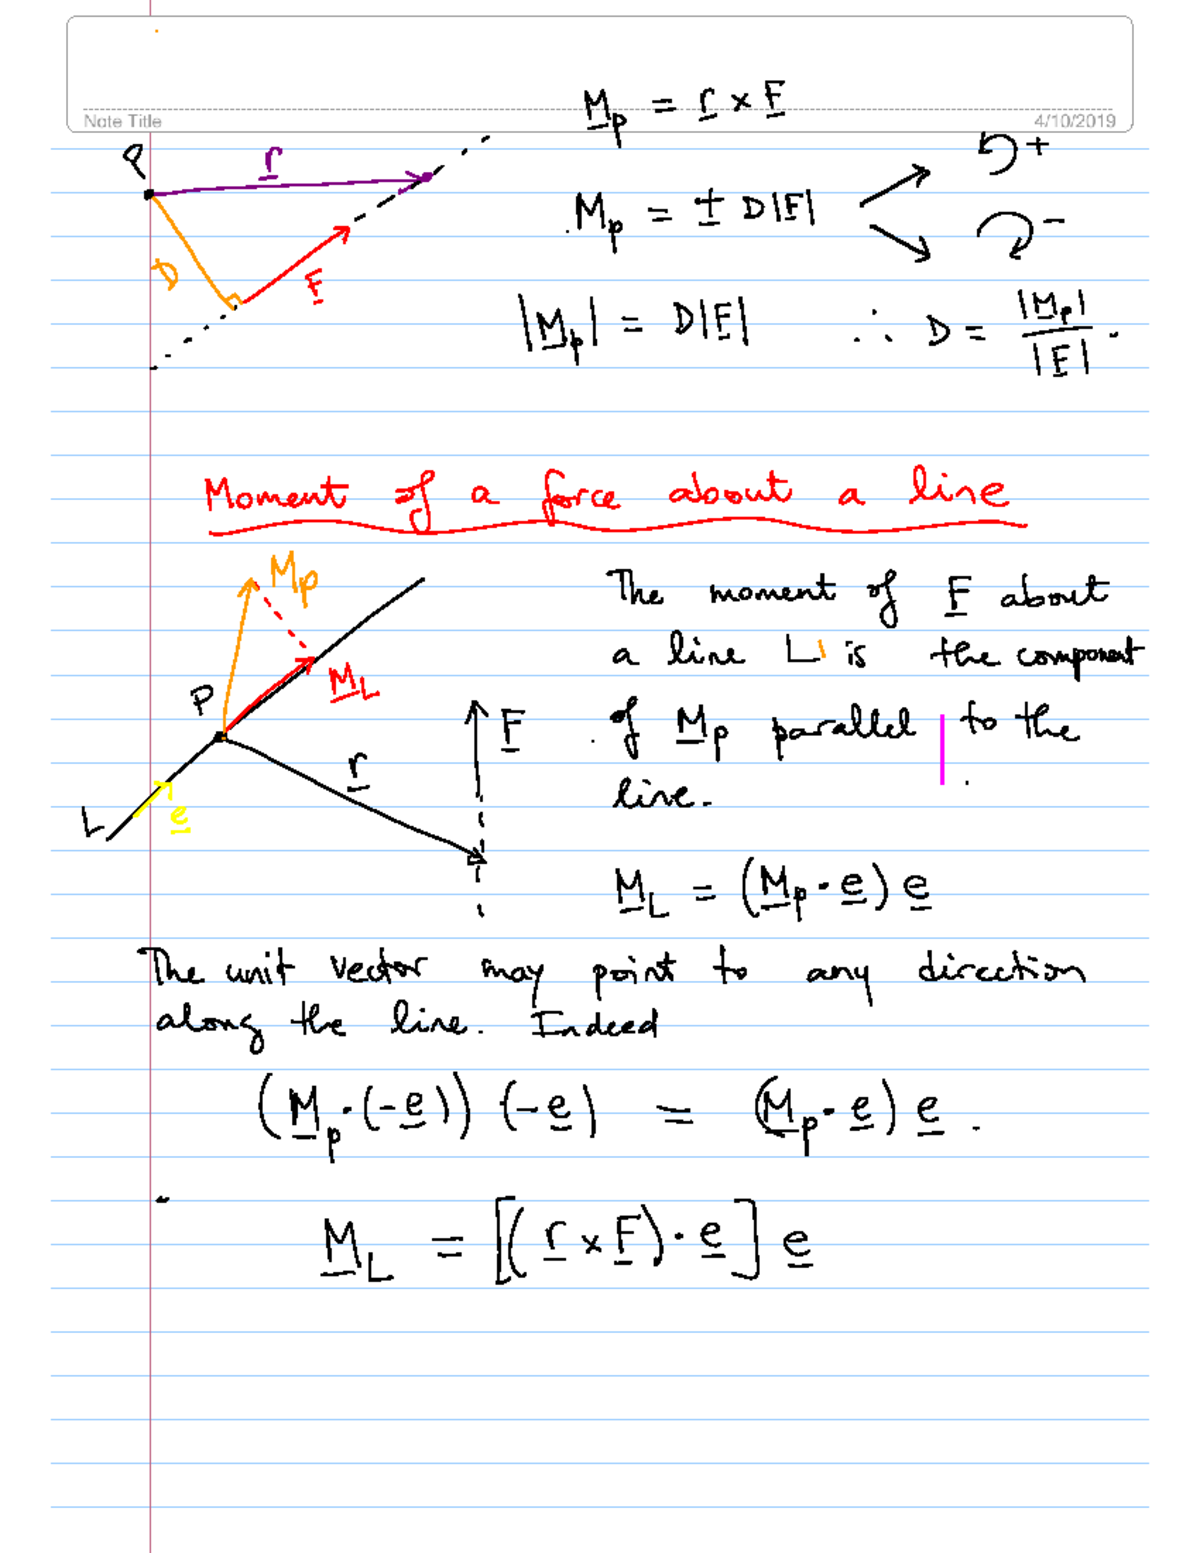 M̲p = r̲ × F̲
Note Title
4/10/2019
P
r̲
+
Mp = ± D|F̲|
-
D
F̲
|M̲p| = D|F̲| ∴ D = |M̲p| / |F̲| .
Moment of a force about a line
Mp
The moment of F̲ about
a line L is the component
M̲L
P
of M̲p parallel to the
F̲
r̲
line.
L
e̲
M̲L = (M̲p · e̲) e̲
The unit vector may point to any direction
along the line. Indeed
(M̲p · (-e̲)) (-e̲) = (M̲p · e̲) e̲ .
M̲L = [(r̲ × F̲) · e̲] e̲